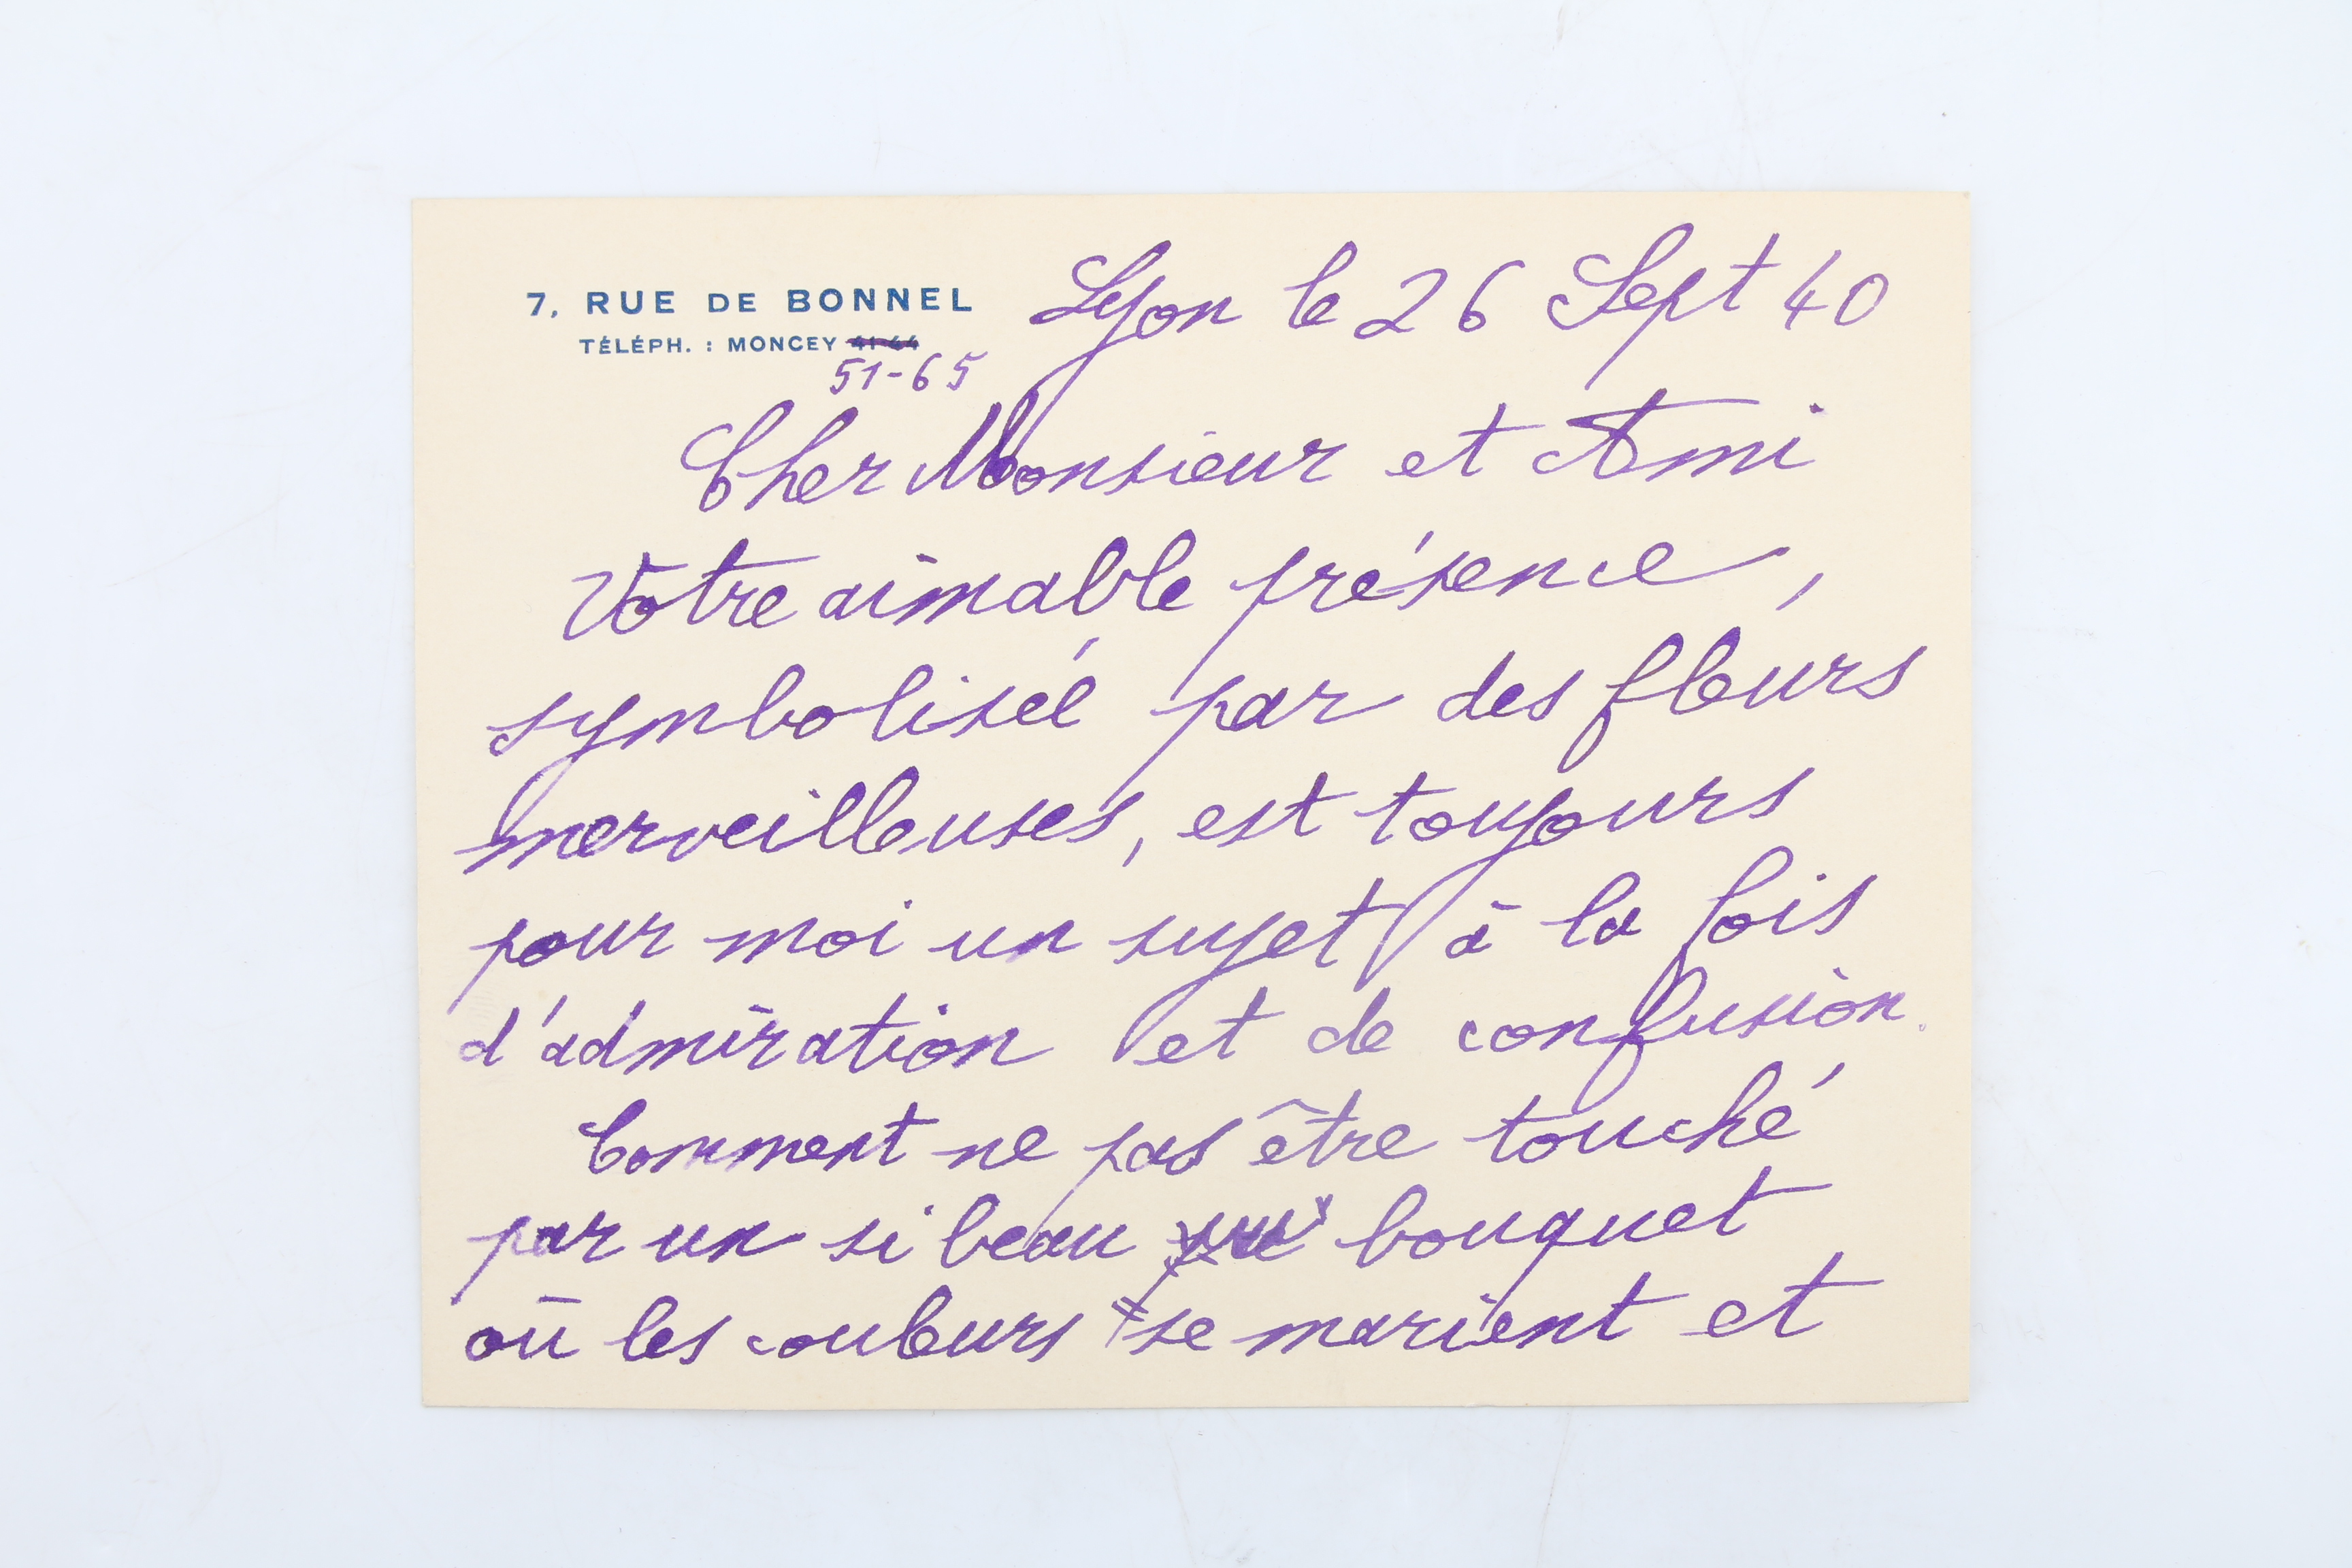 7, RUE DE BONNEL
TÉLÉPH. : MONCEY
51-65
Lyon le 26 Sept 40
Cher Monsieur et Ami
Votre aimable présence,
symbolisée par des fleurs
merveilleuses, est toujours
pour moi un sujet à la fois
d'admiration et de confusion.
Comment ne pas être touché
par un si beau bouquet
où les couleurs se marient et